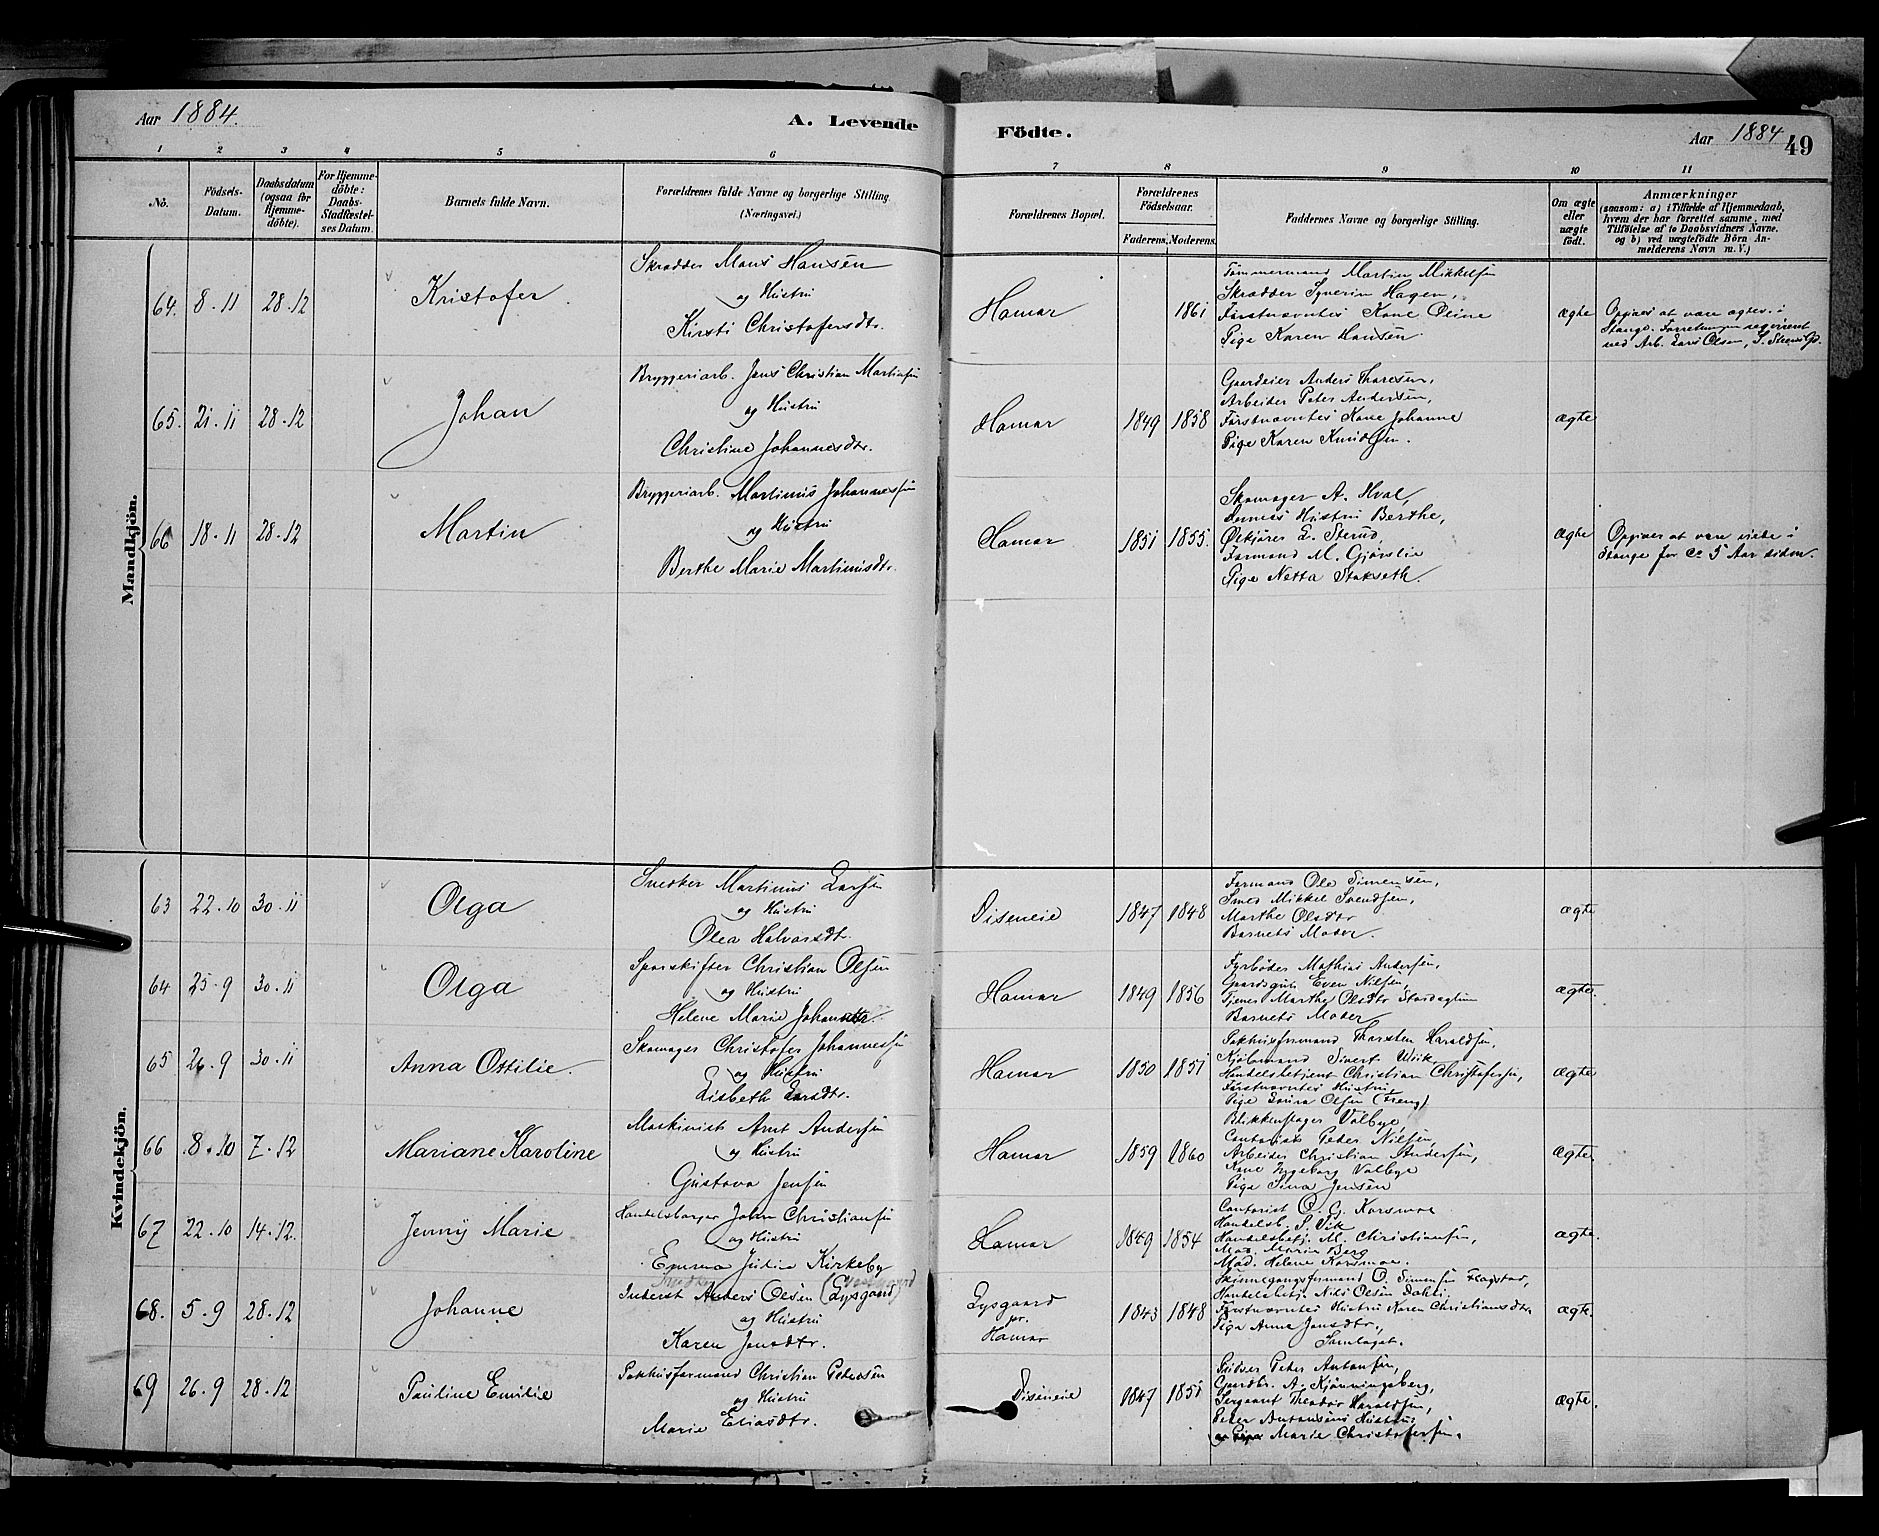 Aar 1884.
A. Levende Födte.
Aar 1884
49
1 2 3 4 5 6 7 8 9 10 11
No.
Födsels-Datum.
Daabsdatum (ogsaa for Hjemme-döbte).
For Hjemme-döbte: Daabs-Stadfæstel-ses Datum.
Barnets fulde Navn.
Forældrenes fulde Navne og borgerlige Stilling. (Næringsvei.)
Forældrenes Bopæl.
Forældrenes Födselsaar.
Faderens.
Moderens.
Faddernes Navne og borgerlige Stilling.
Om ægte eller uægte födt.
Anmærkninger
(saasom: a) i Tilfælde af Hjemmedaab,
hvem der har forrettet samme, med
Tilföielse af to Daabsvidners Navne.
og b) ved uægtefödte Börn An-
melderens Navn m. V.)
Mandkjön.
64. 8.11 28.12 Kristofer.
Skrædder Mons Hansen
og Hustru
Kirsti Christofersdtr.
Hamar 1861
Tømmermand Martin Mikkelsen
Skrædder Syverin Hagen,
Førstnævntes Kone Oline
Pige Karen Hansen
ægte
Opgives at være ægtev. i
Stange. Forretningen
ved Arb. Lars Olsen,
65. 21.11 28.12 Johan
Bryggeriarb. Jens Christian Martinsen
og Hustru
Christine Johannesdtr.
Hamar 1849 1858
Gaardeier Anders Thoresen,
Arbeider Peter Andersen,
Førstnævntes Kone Johanne
Pige Karen Knudsen.
ægte
66 18.11 28.12 Martin
Bryggeriarb. Martinus Johannessen
og Hustru
Berthe Marie Martinusdtr.
Hamar 1851 1855.
Skomager A. Hval,
Dennes Hustru Berthe,
Ølkjører L. Sterud,
Formand M. Gjørslie
Pige Netta Stakseth.
ægte
Opgives at være viede i
Stange for Ca 5 Aar siden.
Kvindekjön.
63 22.10 30.11 Olga
Snedker Martinus Larsen
og Hustru
Olea Halvorsdtr.
Diseneie 1847 1848
Formand Ole Simensen,
Smed Mikkel Svendsen,
Marthe Olsdtr
Barnets Moder.
ægte
64 25.9 30.11 Olga
Sporskifter Christian Olsen
og Hustru
Helene Marie
Hamar 1849 1856
Fyrbøder Mathias Andersen,
Gaardsgut Even Nilsen,
Tjenes Marthe Olsdtr
Barnets Moder
ægte.
65 26.9 30.11 Anna Ottilie.
Skomager Christofer Johannessen
og Hustru
Lisbeth Larsdtr.
Hamar 1850 1851
Pakhusformand Thorsten Haraldsen,
Kjøbmand Sivert Wiik,
Handelsbetjent Christian Christofersen,
Førstnævntes Hustru
Pige Laura Olsen
ægte.
66 8.10 7.12 Mariane Karoline
Maskinist Arnt Andersen
og Hustru
Gustava Jensen
Hamar 1859 1860
Blikkenslager Valbye,
Contorist Peder Nielsen,
Arbeider Christian Andersen,
Kone Ingeborg Valbye
Pige Sina Jensen
ægte.
67 22.10 14.12. Jenny Marie
Handelsborger John Christiansen
og Hustru
Emma Julia Kirkeby
Hamar 1849 1854
Contorist O. G. Korsmoe
Handelsb. S. Vik
Handelsbetj. M. Christiansen,
Mad. Maria Berg
Mad. Helene Korsmoe.
ægte.
68. 5.9 28.12 Johanne
Snedker
Inderst Anders Olsen (Lysgaard)
og Hustru
Karen Jensdtr.
Lysgaard
pr.
Hamar
1843 1848
O. Simensen Flagstad,
Handelsbetj. Nils Olsen Dahl,
Førstnævntes Hustru Karen Christiansdtr.
Pige Anne Jensdtr.,
Samlaget.
ægte.
69 26.9 28.12 Pauline Emilie
Pakhusformand Christian Pedersen
og Hustru
Marie Eliasdtr.
Diseneie 1847 1851
Peter Antonsen,
Gaardbr. A. Kjønningsberg,
Sergeant Theodor Haraldsen,
Peter Antonsens Hustru,
Pige Marie Christofersen.
ægte.